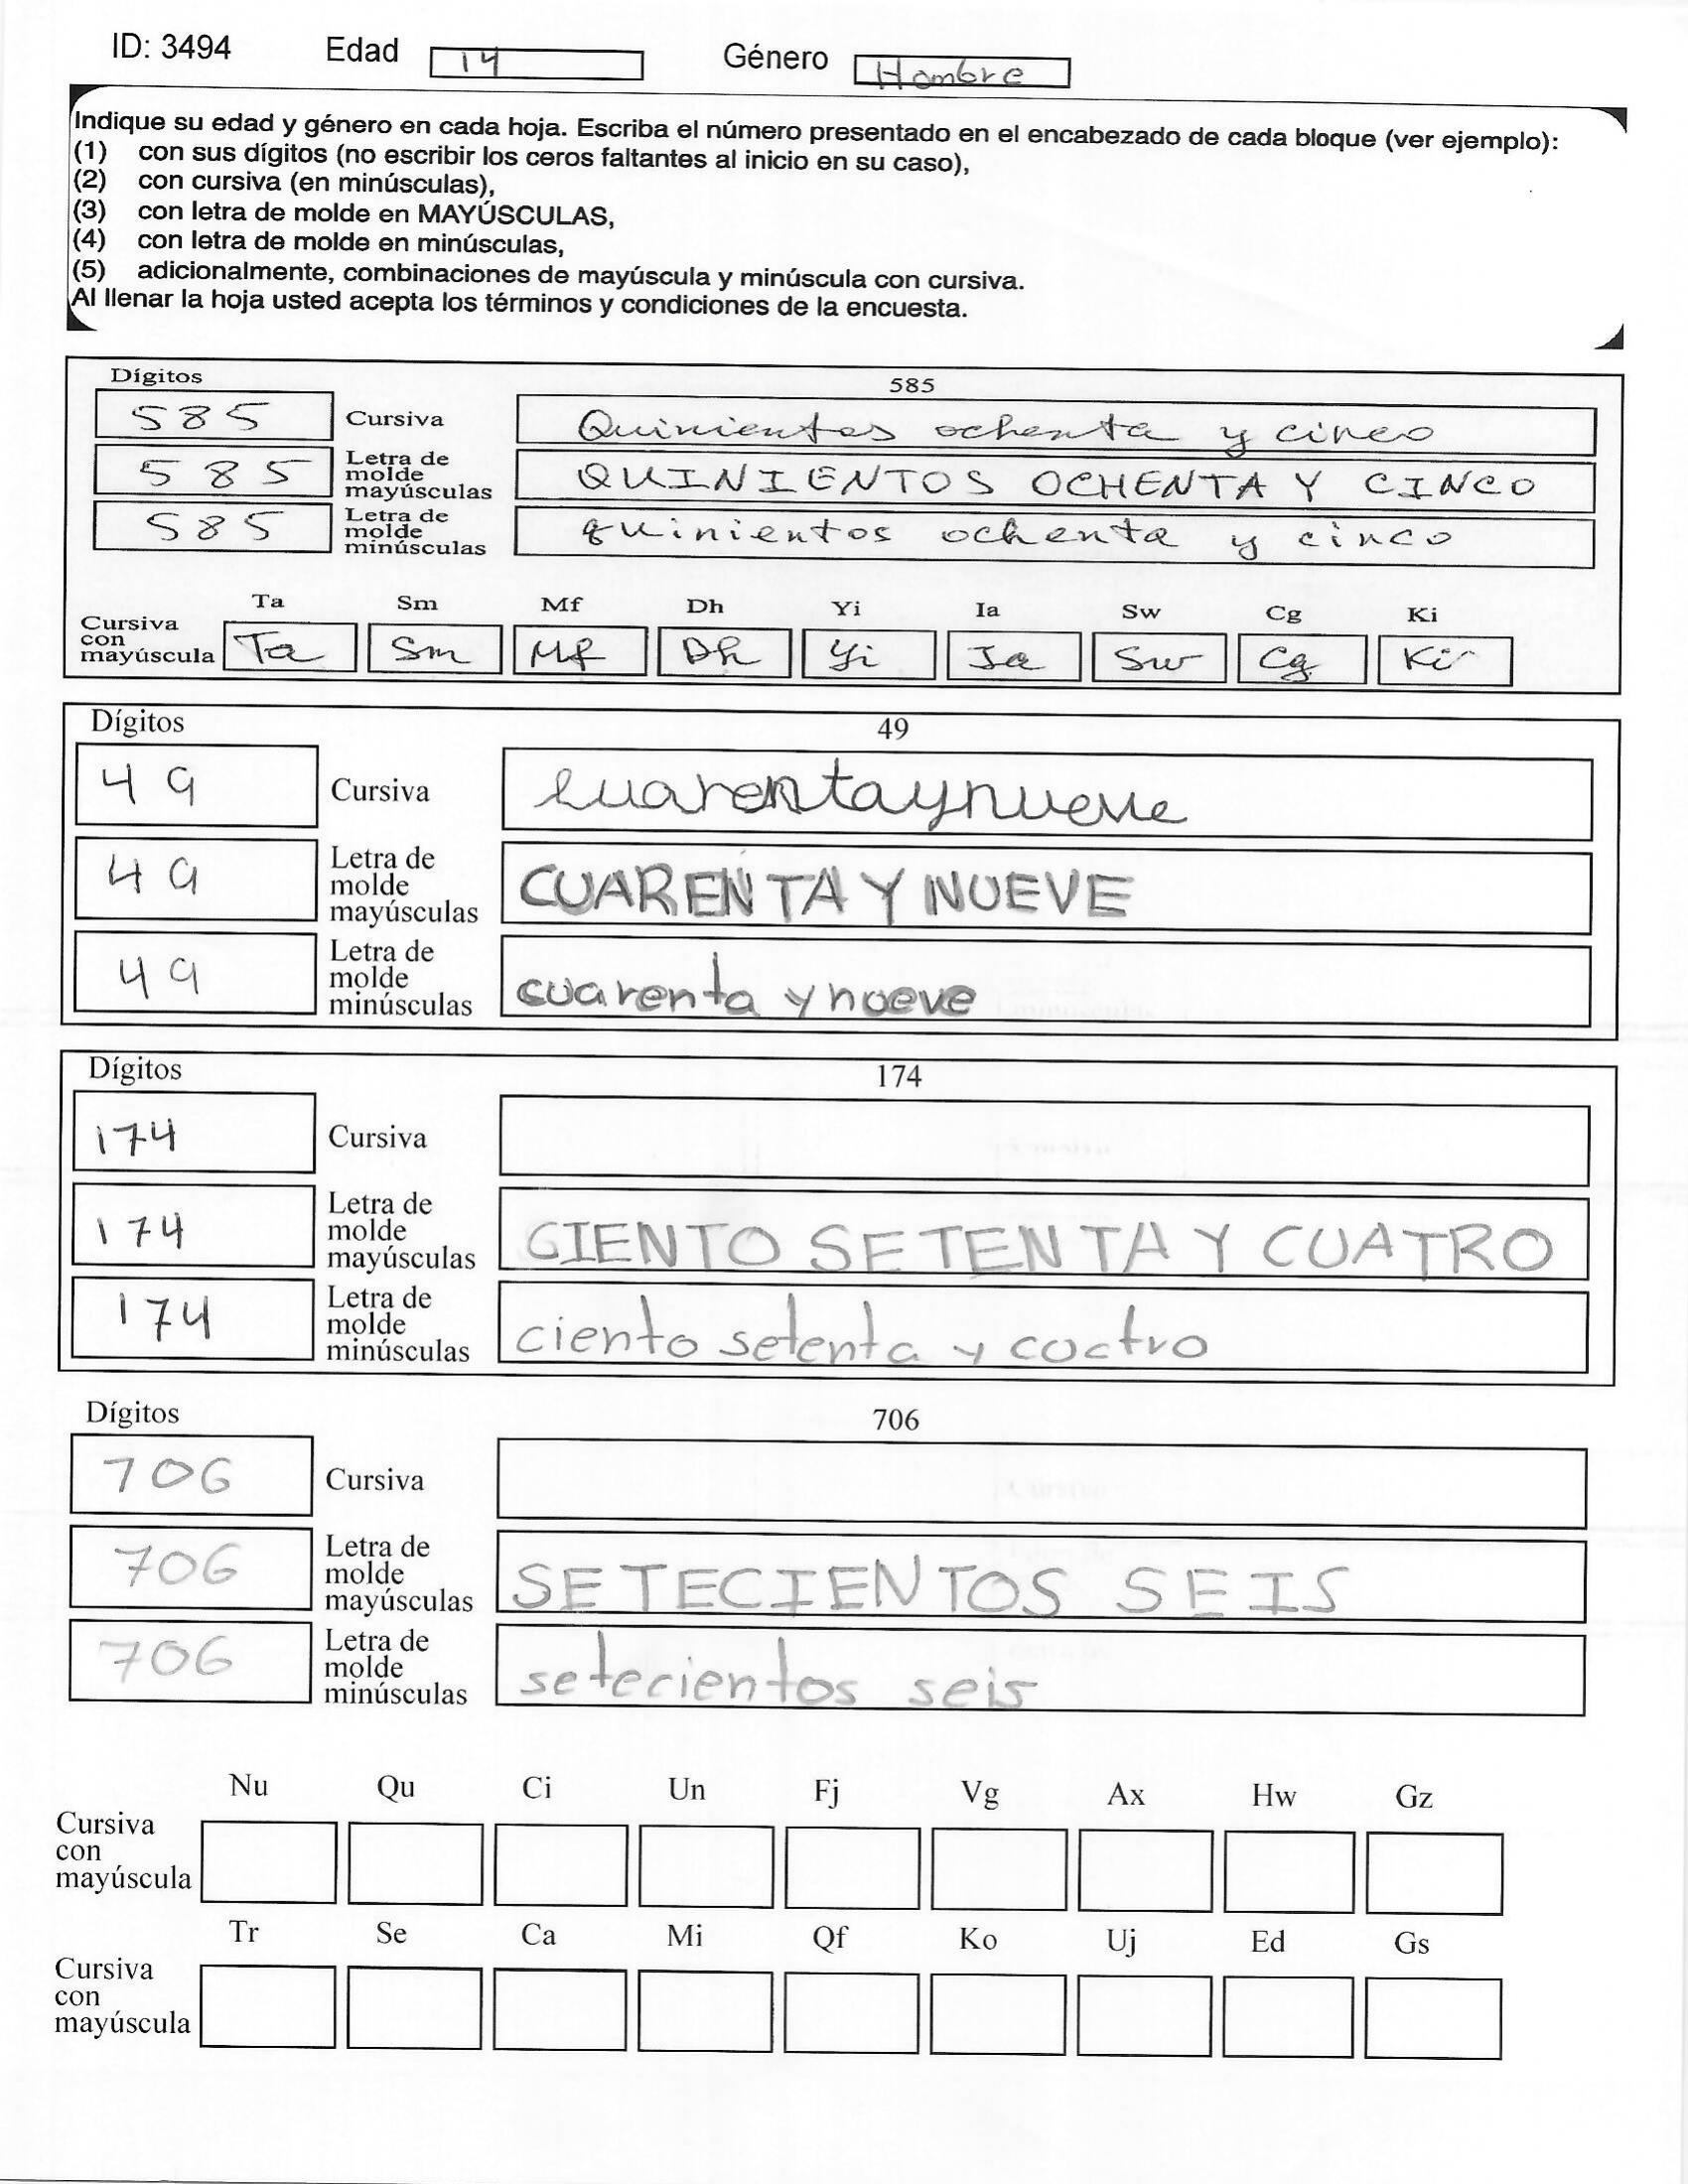 ID: 3494 Edad 14 Género Hombre
Indique su edad y género en cada hoja. Escriba el número presentado en el encabezado de cada bloque (ver ejemplo):
(1) con sus dígitos (no escribir los ceros faltantes al inicio en su caso),
(2) con cursiva (en minúsculas),
(3) con letra de molde en MAYÚSCULAS,
(4) con letra de molde en minúsculas,
(5) adicionalmente, combinaciones de mayúscula y minúscula con cursiva.
Al llenar la hoja usted acepta los términos y condiciones de la encuesta.
Dígitos 585
585 Cursiva Quinientos ochenta y cinco
585 Letra de molde mayúsculas QUINIENTOS OCHENTA Y CINCO
585 Letra de molde minúsculas quinientos ochenta y cinco
Ta Sm Mf Dh Yi Ia Sw Cg Ki
Cursiva con mayúscula Ta Sm Mf Dh Yi Ia Sw Cg Ki
Dígitos 49
49 Cursiva cuarentaynueve
49 Letra de molde mayúsculas CUARENTA Y NUEVE
49 Letra de molde minúsculas cuarenta y nueve
Dígitos 174
174 Cursiva
174 Letra de molde mayúsculas CIENTO SETENTA Y CUATRO
174 Letra de molde minúsculas ciento setenta y cuatro
Dígitos 706
706 Cursiva
706 Letra de molde mayúsculas SETECIENTOS SEIS
706 Letra de molde minúsculas setecientos seis
Nu Qu Ci Un Fj Vg Ax Hw Gz
Cursiva con mayúscula
Tr Se Ca Mi Qf Ko Uj Ed Gs
Cursiva con mayúscula